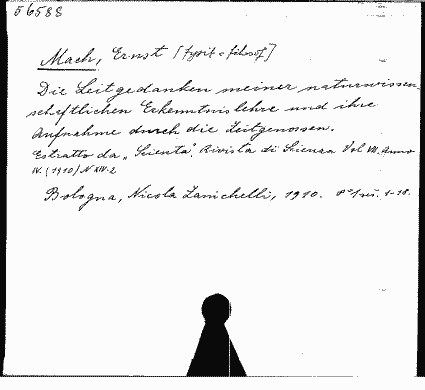 56588
Mach, Ernst [fysik e filosof]
Die Leitgedanken meiner naturwissen
schaftlichen Erkenntnislehre und ihre
Aufnahme durch die Zeitgenossen.
Estratto da „Scientia", Rivista di Scienza Vol VII. Anno
IV. (1910) N XIV-2
Bologna, Nicola Zanichelli, 1910. 8°